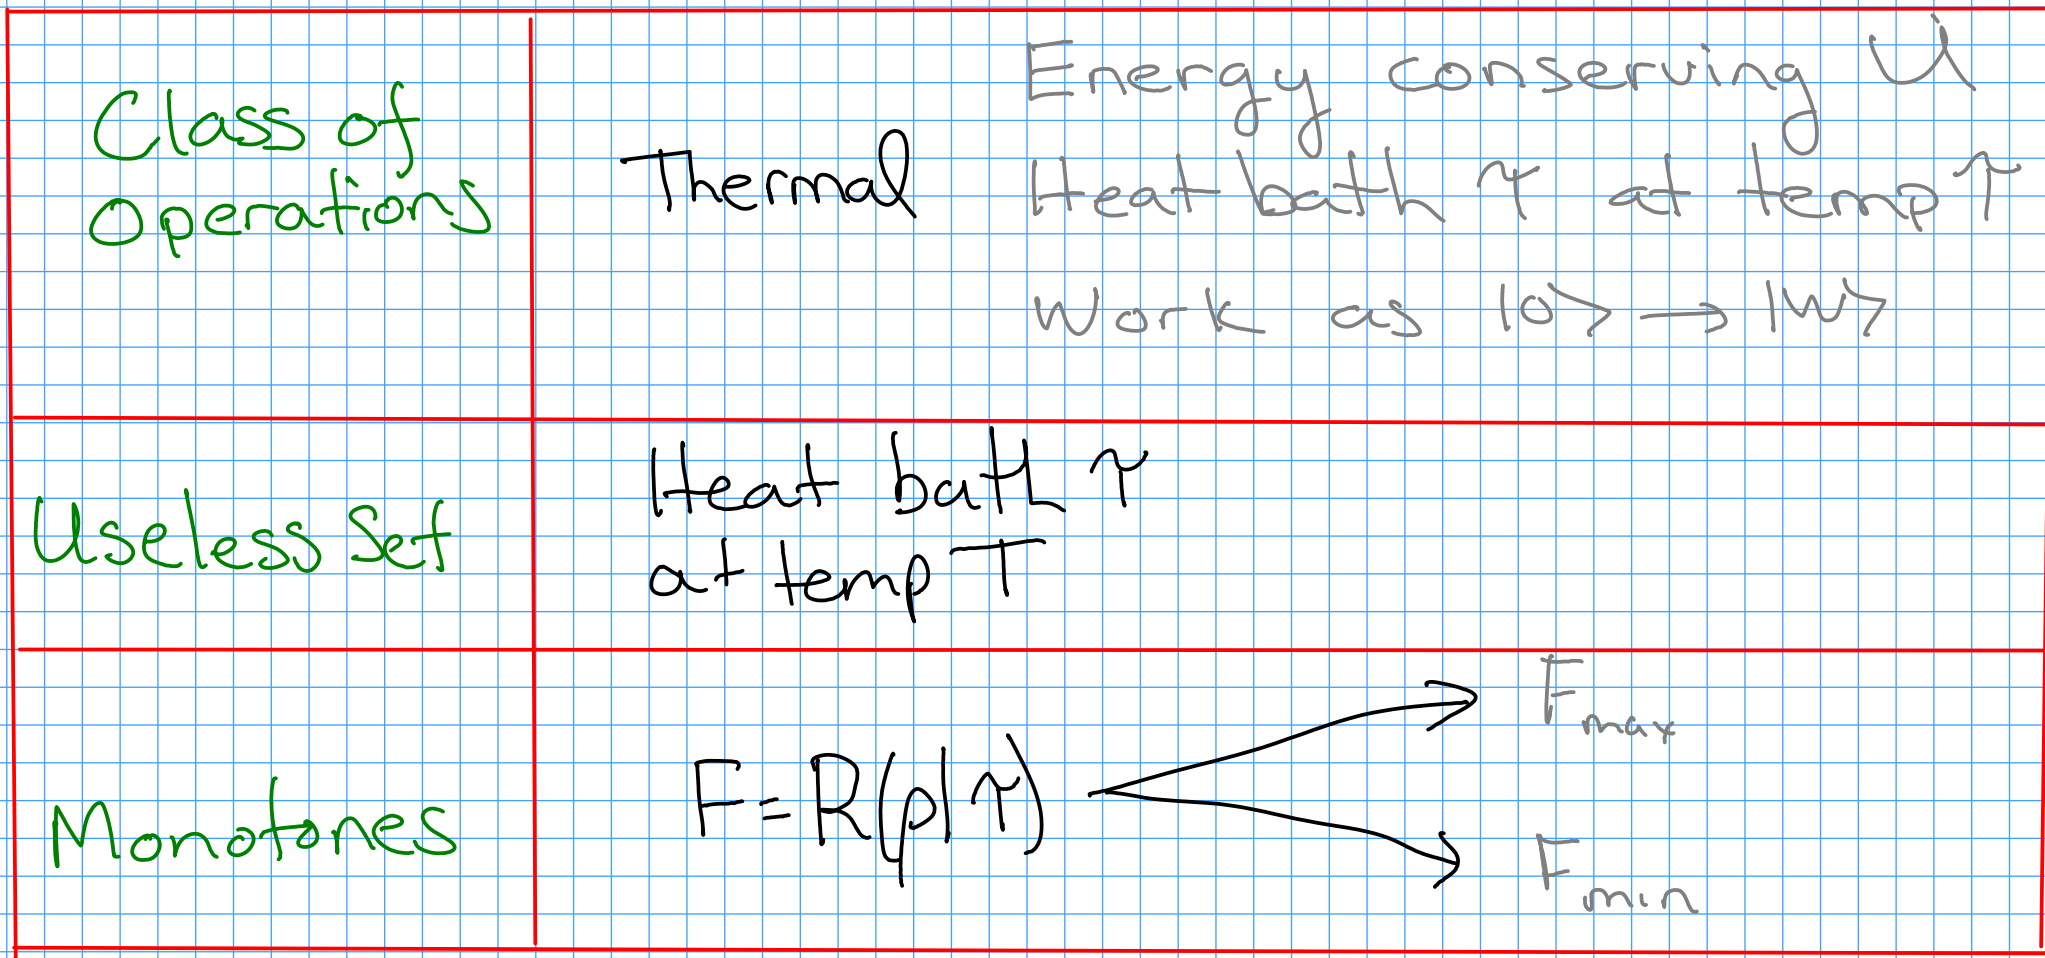 Class of
Operations
Thermal
Energy conserving U
Heat bath τ at temp T
Work as |0> → |W>
Useless Set
Heat bath τ
at temp T
Monotones
F = R(ρ|τ)
F_max
F_min